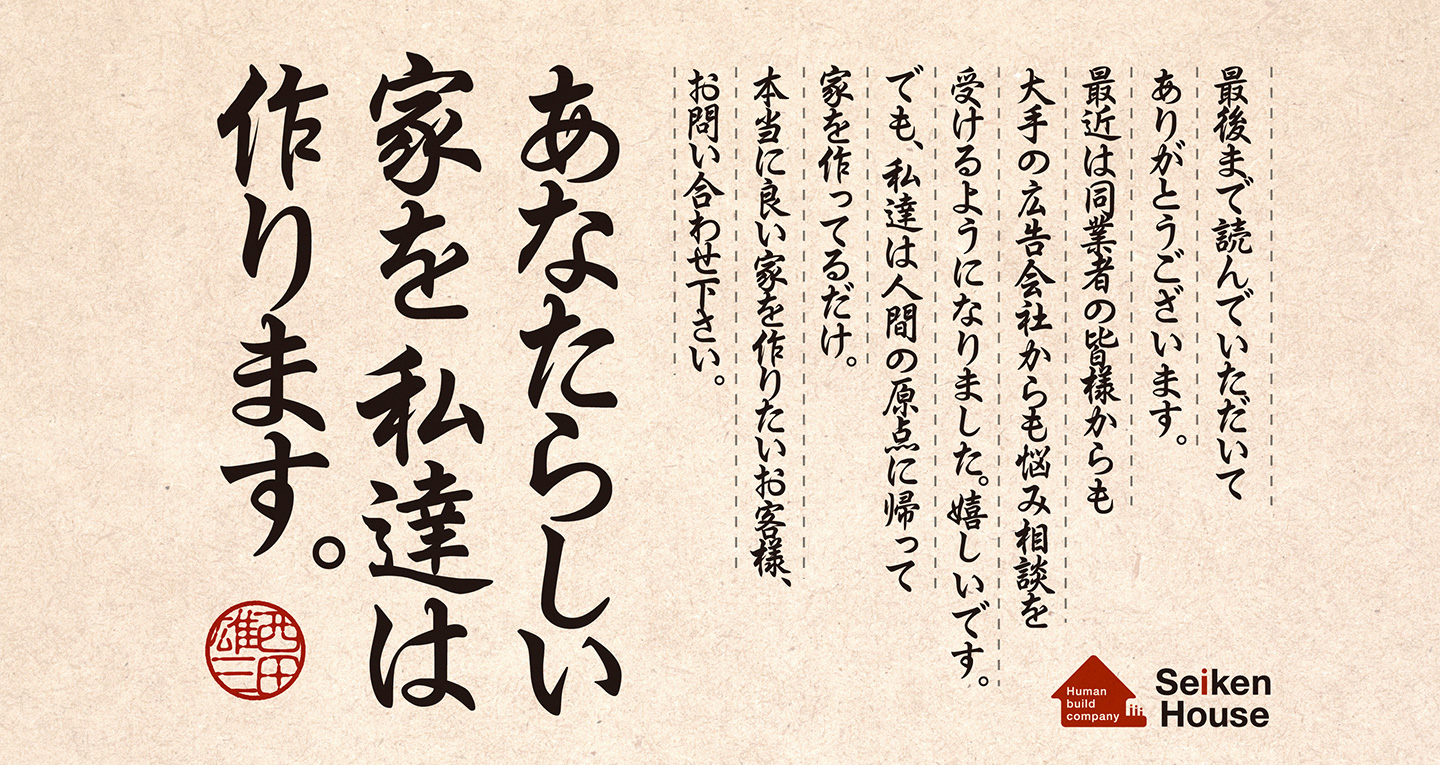 最後まで読んでいただいて
ありがとうございます。
最近は同業者の皆様からも
大手の広告会社からも悩み相談を
受けるようになりました。嬉しいです。
でも、私達は人間の原点に帰って
家を作ってるだけ。
本当に良い家を作りたいお客様、
お問い合わせ下さい。
あなたらしい
家を私達は
作ります。
西田
雄二
Human
build
company
Seiken
House